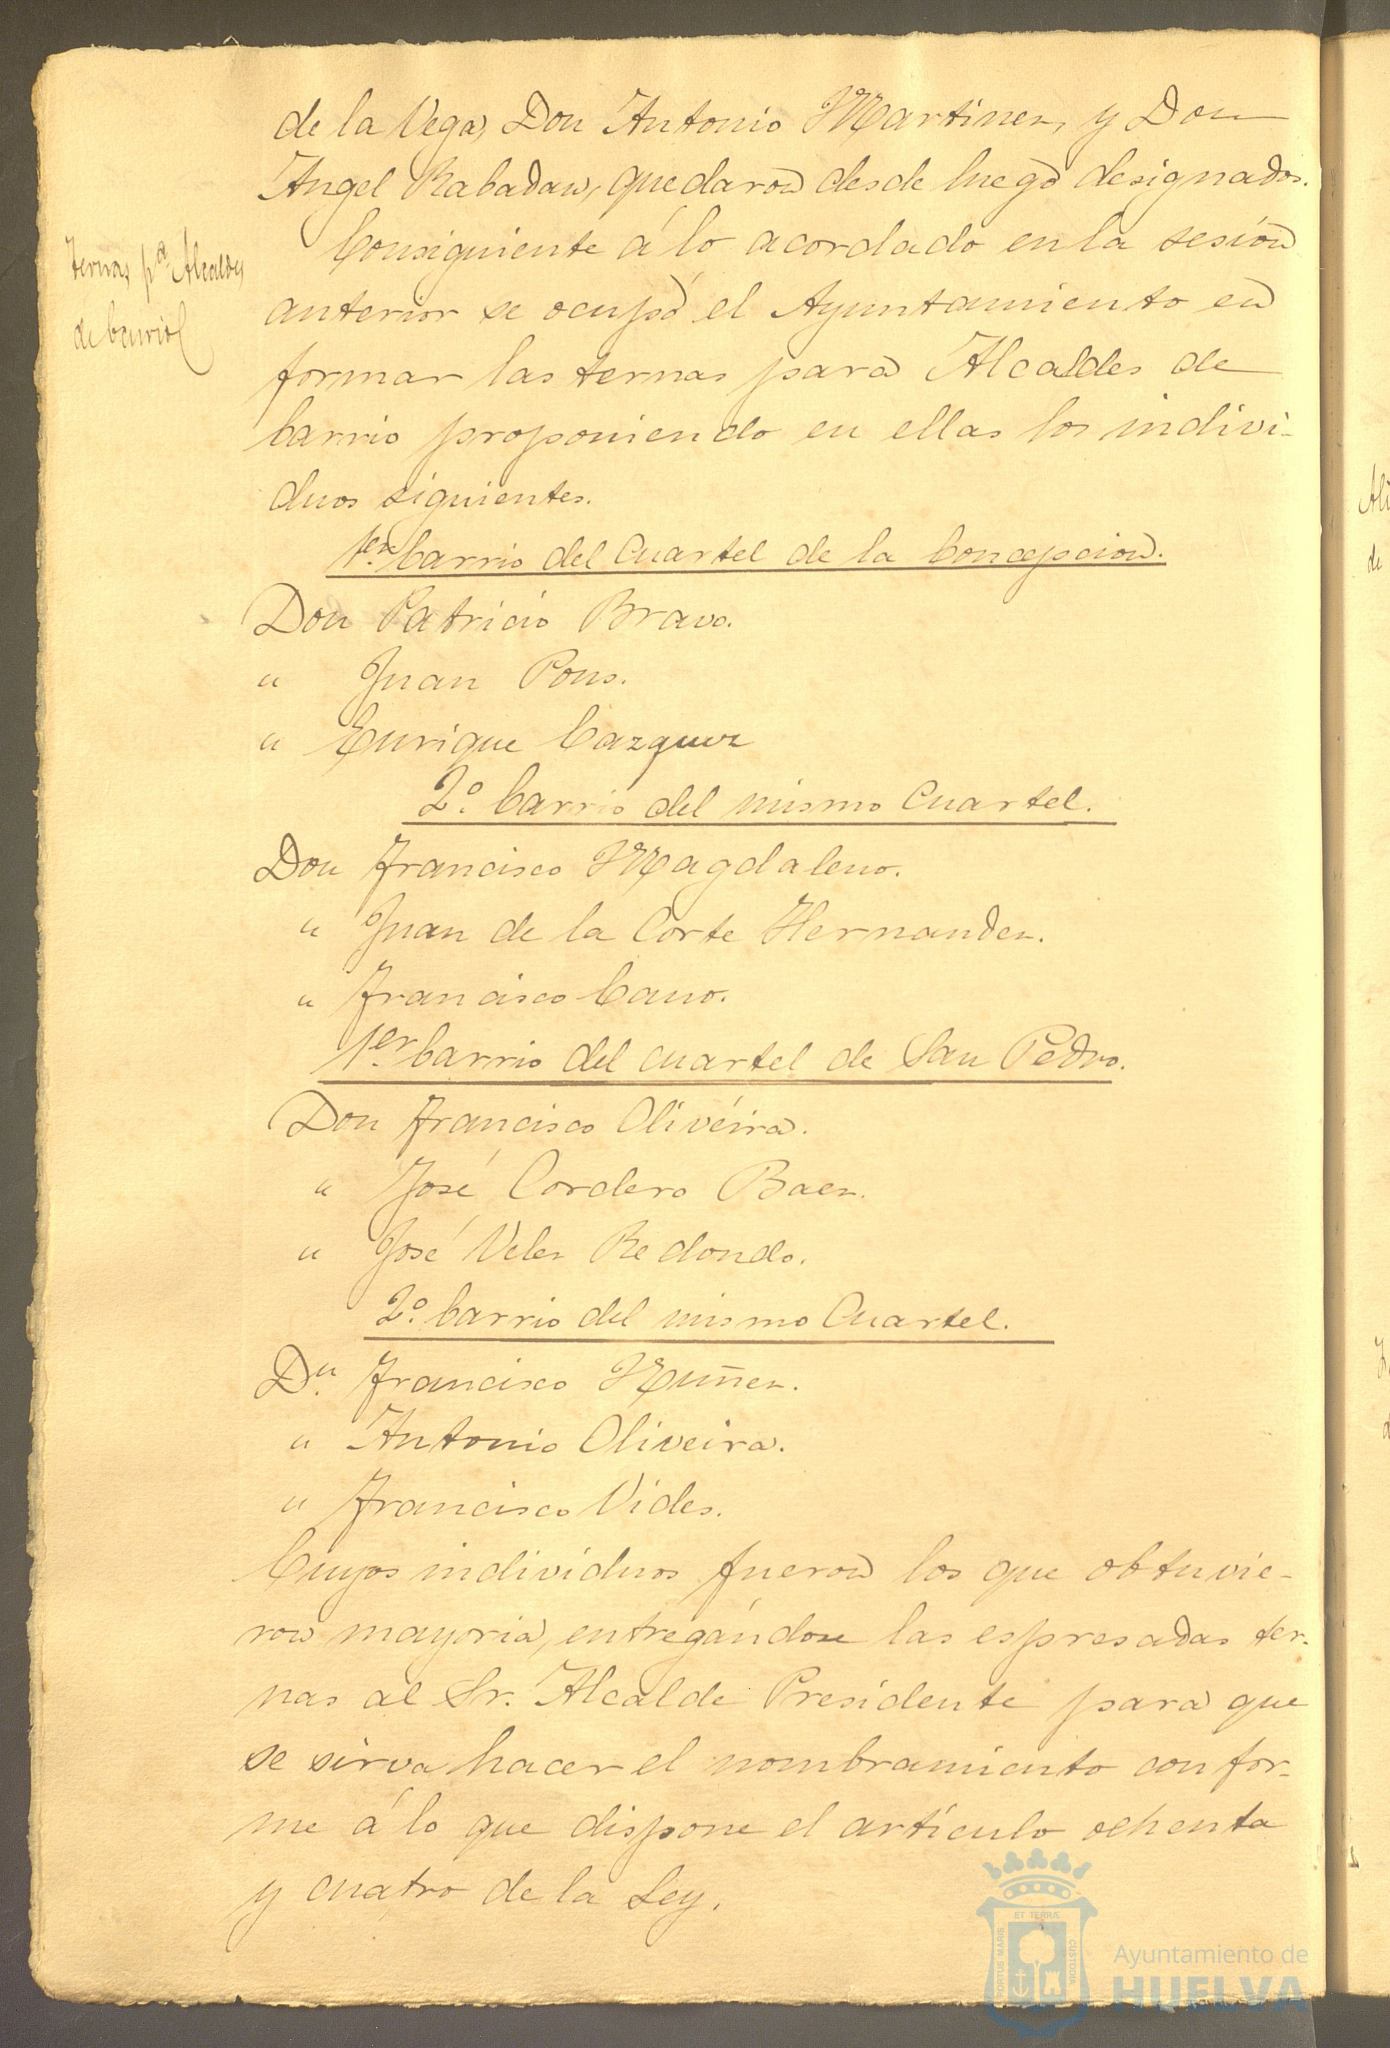 de la Vega, Don Antonio Martinez, y Don
Angel Rabadan, quedaron desde luego designados.
Ternas pª Alcaldes
de barrio
Consiguiente á lo acordado en la sesión
anterior se ocupó el Ayuntamiento en
formar las ternas para Alcaldes de
barrio proponiendo en ellas los indivi-
duos siguientes.
1er. barrio del Cuartel de la Concepcion.
Don Patricio Bravo.
" Juan Pons.
" Enrique Cazquez
2º. barrio del mismo Cuartel.
Don Francisco Magdaleno.
" Juan de la Corte Hernandez.
" Francisco Cano.
1er. barrio del cuartel de San Pedro.
Don Francisco Olivéira.
" José Cordero Baez.
" José Velez Redondo.
2º. barrio del mismo Cuartel.
Dn. Francisco Nuñez.
" Antonio Oliveira.
" Francisco Vides.
Cuyos individuos fueron los que obtuvie-
ron mayoria, entregándose las espresadas ter-
nas al Sr. Alcalde Presidente para que
se sirva hacer el nombramiento confor-
me á lo que dispone el artículo ochenta
y cuatro de la Ley.
PORTUS MARIS ET TERRÆ CUSTODIA
Ayuntamiento de
HUELVA